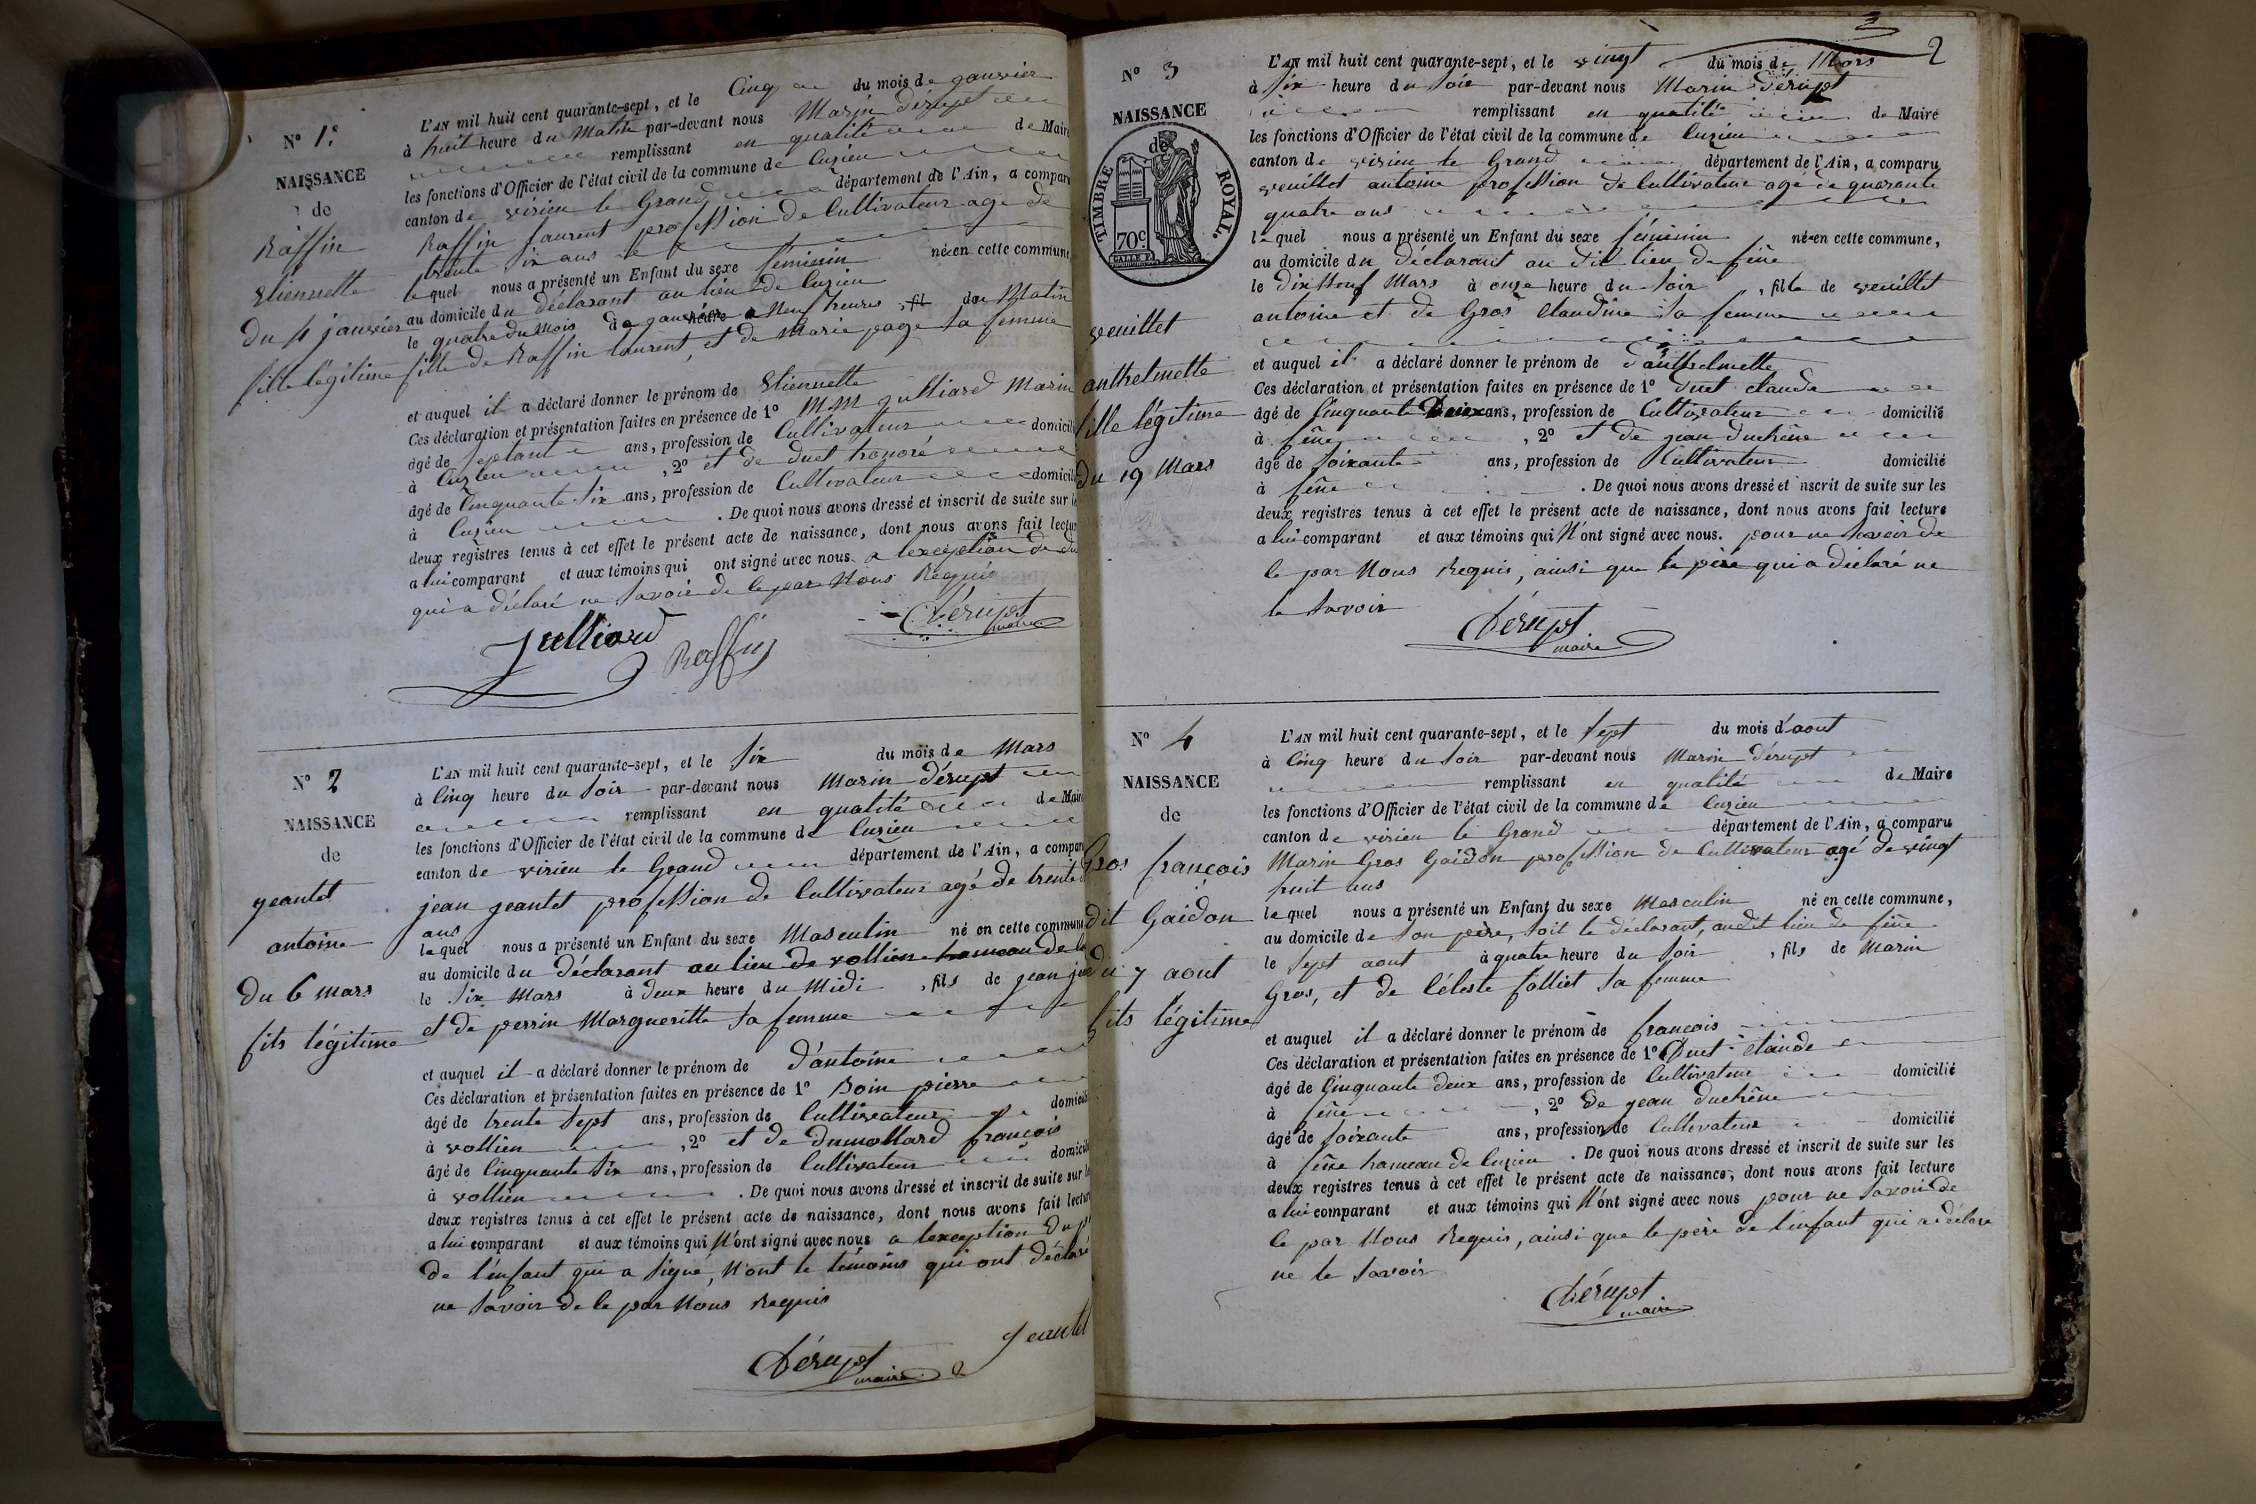 N° 1.
NAISSANCE
de
Raffin
Etiennette
du 4 janvier
fille légitime
L'AN mil huit cent quarante-sept, et le Cinq du mois de janvier
à huit heure du Matin par-devant nous Marin Dérupt
remplissant en qualité de Maire
les fonctions d'Officier de l'état civil de la commune de Cuzieu
canton de virieu le Grand département de l'Ain, a comparu
Raffin Laurent profession de Cultivateur agé de
trente six ans
lequel nous a présenté un Enfant du sexe féminin né en cette commune
au domicile du déclarant au lieu de Cuzieu
le quatre du Mois de janvier heure a Neuf heures, fil du Matin
fille de Raffin laurent, et de Marie page sa femme
et auquel il a déclaré donner le prénom de Etiennette
Ces déclaration et présentation faites en présence de 1° MM julliard Marin
âgé de septante ans, profession de Cultivateur domicil
à Cuzieu, 2° et de duet honoré
âgé de Cinquante six ans, profession de Cultivateur domicil
à Cuzieu. De quoi nous avons dressé et inscrit de suite sur le
deux registres tenus à cet effet le présent acte de naissance, dont nous avons fait lectur
a lui comparant et aux témoins qui ont signé avec nous a lexception de du
qui a déclaré ne savoir de le par Nous Requis
Julliard Raffin Dérupt
maire
N° 2
NAISSANCE
de
jeantet
antoine
du 6 mars
fils légitime
L'AN mil huit cent quarante-sept, et le six du mois de Mars
à Cinq heure du soir par-devant nous Marin Dérupt
remplissant en qualité de Maire
les fonctions d'Officier de l'état civil de la commune de Cuzieu
canton de virieu le Grand département de l'Ain, a compar
jean jeantet profession de Cultivateur agé de trente
ans
lequel nous a présenté un Enfant du sexe Masculin né en cette commune
au domicile du déclarant au lieu de vollien hameau de
le six Mars à deux heure du Midi, fils de jean
et de perrin Margueritte sa femme
et auquel il a déclaré donner le prénom de d'antoine
Ces déclaration et présentation faites en présence de 1° Roin pierre
âgé de trente sept ans, profession de Cultivateur domicil
à vollien, 2° et de dumollard françois
âgé de Cinquante six ans, profession de Cultivateur domicil
à vollien. De quoi nous avons dressé et inscrit de suite sur
deux registres tenus à cet effet le présent acte de naissance, dont nous avons fait lectur
a lui comparant et aux témoins qui N'ont signé avec nous a lexception du
de l'enfant qui a signé, N'ont le témoins qui ont déclaré
ne savoir de le par Nous Requis
Dérupt Jeantet
maire
2
N° 3
NAISSANCE
de
TIMBRE ROYAL.
70c.
veuillet
anthelmette
fille légitime
du 19 Mars
L'AN mil huit cent quarante-sept, et le vingt du mois de Mars
à six heure du soir par-devant nous Marin Dérupt
remplissant en qualité de Maire
les fonctions d'Officier de l'état civil de la commune de Cuzieu
canton de virieu le Grand département de l'Ain, a comparu
veuillet antoine profession de Cultivateur agé de quarante
quatre ans
lequel nous a présenté un Enfant du sexe féminin né en cette commune,
au domicile du déclarant au dit lieu de fêne
le dix Neuf Mars à onze heure du soir, fille de veuillet
antoine et de Gros Claudine sa femme
et auquel il a déclaré donner le prénom de d'anthelmette
Ces déclaration et présentation faites en présence de 1° duet claude
âgé de Cinquante Deux ans, profession de Cultivateur domicilié
à fêne, 2° et de jean duchêne
âgé de soixante ans, profession de Cultivateur domicilié
à fêne. De quoi nous avons dressé et inscrit de suite sur les
deux registres tenus à cet effet le présent acte de naissance, dont nous avons fait lecture
a lui comparant et aux témoins qui N'ont signé avec nous. pour ne savoir de
le par Nous Requis, ainsi que le père qui a déclaré ne
le savoir
Dérupt
maire
N° 4
NAISSANCE
de
Gros françois
dit Gaidon
du 7 aout
fils légitime
L'AN mil huit cent quarante-sept, et le sept du mois d'aout
à Cinq heure du soir par-devant nous Marin Dérupt
remplissant en qualité de Maire
les fonctions d'Officier de l'état civil de la commune de Cuzieu
canton de virieu le Grand département de l'Ain, a comparu
Marin Gros Gaidon profession de Cultivateur agé de vingt
huit ans
lequel nous a présenté un Enfant du sexe Masculin né en cette commune,
au domicile de son père, soit le déclarant, audit lieu de fêne
le sept aout à quatre heure du soir, fils de Marin
Gros, et de Céleste folliet sa femme
et auquel il a déclaré donner le prénom de françois
Ces déclaration et présentation faites en présence de 1° Duet claude
âgé de Cinquante deux ans, profession de Cultivateur domicilié
à fêne, 2° de jean duchêne
âgé de soixante ans, profession de Cultivateur domicilié
à fêne hameau de Cuzieu. De quoi nous avons dressé et inscrit de suite sur les
deux registres tenus à cet effet le présent acte de naissance, dont nous avons fait lecture
a lui comparant et aux témoins qui N'ont signé avec nous pour ne savoir de
le par Nous Requis, ainsi que le père de l'enfant qui a déclare
ne le savoir
Dérupt
maire